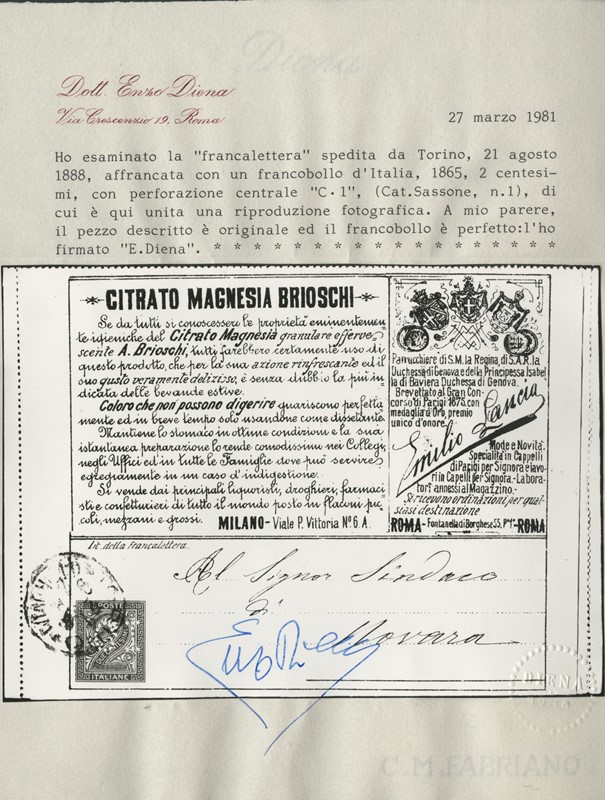 Diena
Dott. Enzo Diena
Via Crescenzio 19, Roma
27 marzo 1981
Ho esaminato la "francalettera" spedita da Torino, 21 agosto
1888, affrancata con un francobollo d'Italia, 1865, 2 centesi-
mi, con perforazione centrale "C·1", (Cat.Sassone, n.1), di
cui è qui unita una riproduzione fotografica. A mio parere,
il pezzo descritto è originale ed il francobollo è perfetto:l'ho
firmato "E.Diena". * * * * * * * * * * * * * * * * * *
CITRATO MAGNESIA BRIOSCHI
Se da tutti si conoscessero le proprietà eminentemen-
te igieniche del Citrato Magnesia granulare efferve-
scente A. Brioschi, tutti farebbero certamente uso di
questo prodotto, che per la sua azione rinfrescante ed il
suo gusto veramente delizioso, è senza dubbio la più in-
dicata delle bevande estive.
Coloro che non possono digerire guariscono perfetta-
mente ed in breve tempo solo usandone come dissetante.
Mantiene lo stomaco in ottime condizioni e la sua
istantanea preparazione lo rende comodissimo nei Collegi,
negli Uffici ed in tutte le Famiglie dove può servire
egregiamente in un caso d'indigestione.
Si vende dai principali liquoristi, droghieri, farmaci-
sti e confetturieri di tutto il mondo posto in flaconi pic-
coli, mezzani e grossi. MILANO - Viale P. Vittoria No 6. A.
Parrucchiere di S.M. la Regina, di S.A.R. la
Duchessa di Genova e della Principessa Isabel-
la di Baviera Duchessa di Genova.
Brevettato al Gran Con-
corso di Parigi 1875 con
medaglia d'Oro, premio
unico d'onore.
Emilio Lancia
Mode e Novità.
Specialità in Cappelli
di Parigi per Signora e lavo-
ri in Capelli per Signora.-Labora-
tori annessi al Magazzino.-
Si ricevono ordinazioni per qual-
siasi destinazione
ROMA - Fontanella di Borghese 55, P.mo 1o - ROMA
Lit. della Francalettera.
Al Signor Sindaco
di
Novara
POSTE
2
ITALIANE
DIENA
ROMA
C.M. FABRIANO